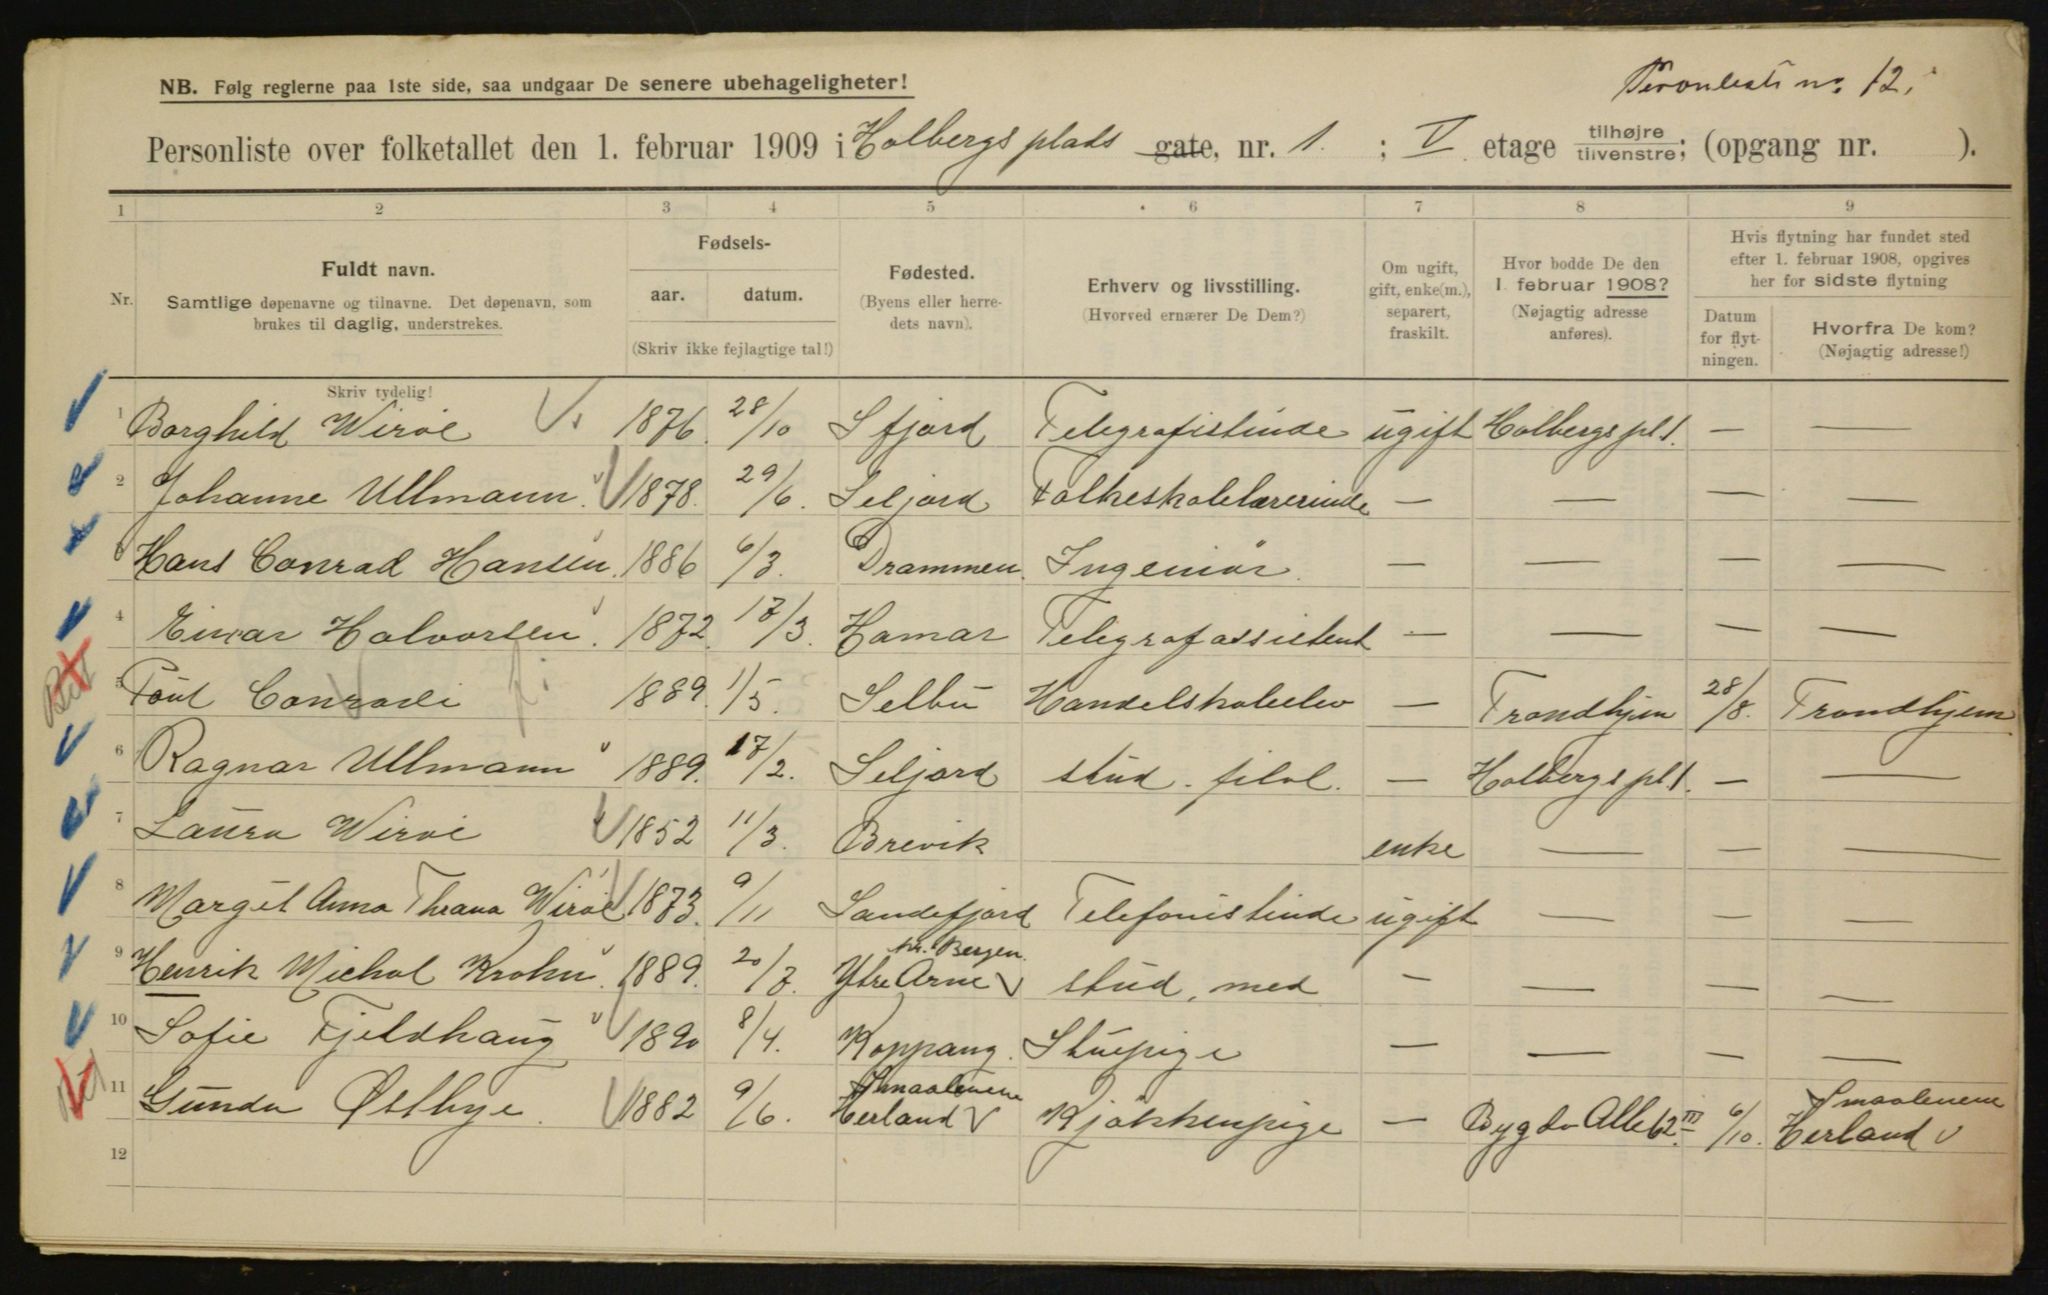 Personliste nr. 12.
NB. Følg reglerne paa 1ste side, saa undgaar De senere ubehageligheter!
Personliste over folketallet den 1. februar 1909 i Holbergs plads gate, nr. 1. ; V etage tilhøjre tilvenstre; (opgang nr. ).
1 2 3 4 5 6 7 8 9
Nr.
Fuldt navn.
Samtlige døpenavne og tilnavne. Det døpenavn, som
brukes til daglig, understrekes.
Skriv tydelig!
Fødsels-
aar. datum.
(Skriv ikke fejlagtige tal!)
Fødested.
(Byens eller herre-
dets navn).
Erhverv og livsstilling.
(Hvorved ernærer De Dem?)
Om ugift,
gift, enke(m.),
separert,
fraskilt.
Hvor bodde De den
1. februar 1908?
(Nøjagtig adresse
anføres).
Hvis flytning har fundet sted
efter 1. februar 1908, opgives
her for sidste flytning
Datum
for flyt-
ningen.
Hvorfra De kom?
(Nøjagtig adresse!)
1 Borghild Wiroe 1876. 28/10 Sfjord Telegrafistinde ugift Holbergs pl 1. — —
2 Johanne Ullmann. 1878. 29/6. Seljord Folkeskolelærerinde — — — —
3 Hans Conrad Hansen. 1886 6/3. Drammen. Ingeniør. — — — —
4 Einar Halvorsen. 1872. 17/3. Hamar Telegrafassistent — — — —
5 Poul Conradi 1889. 1/5. Selbu Handelskoleelev — Trondhjem 28/8. Trondhjem
6 Ragnar Ullmann 1889. 17/2. Seljord stud. filol. — Holbergs pl 1. — —
7 Laura Wiroe 1852 11/3. Brevik enke — — —
8 Margit Anna Thrana Wiroe 1873. 9/11 Sandefjord Telefonistinde ugift — — —
nr. Bergen.
9 Henrik Michal Krohn. 1889. 20/7. Ytre Arne stud. med — — — —
10 Sofie Fjeldhaug 1890 8/4. Koppang. Stuepige — — — —
Smaalenene Smaalenene
11 Gunda Østbye. 1882 9/6. Herland Kjøkkenpige — Bygdø Alle 62. III 6/10. Herland
12